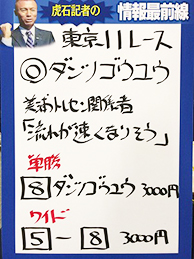 虎石記者の
情報最前線
東京11レース
◎ダンツゴウユウ
美浦トレセン関係者
「流れが速くなりそう」
単勝
8 ダンツゴウユウ 3000円
ワイド
5-8 3000円